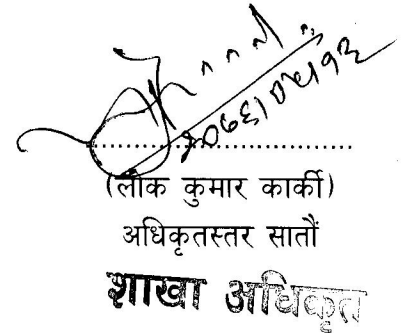 २०७६।०४।१३
(लोक कुमार कार्की)
अधिकृतस्तर सातौं
शाखा अधिकृत